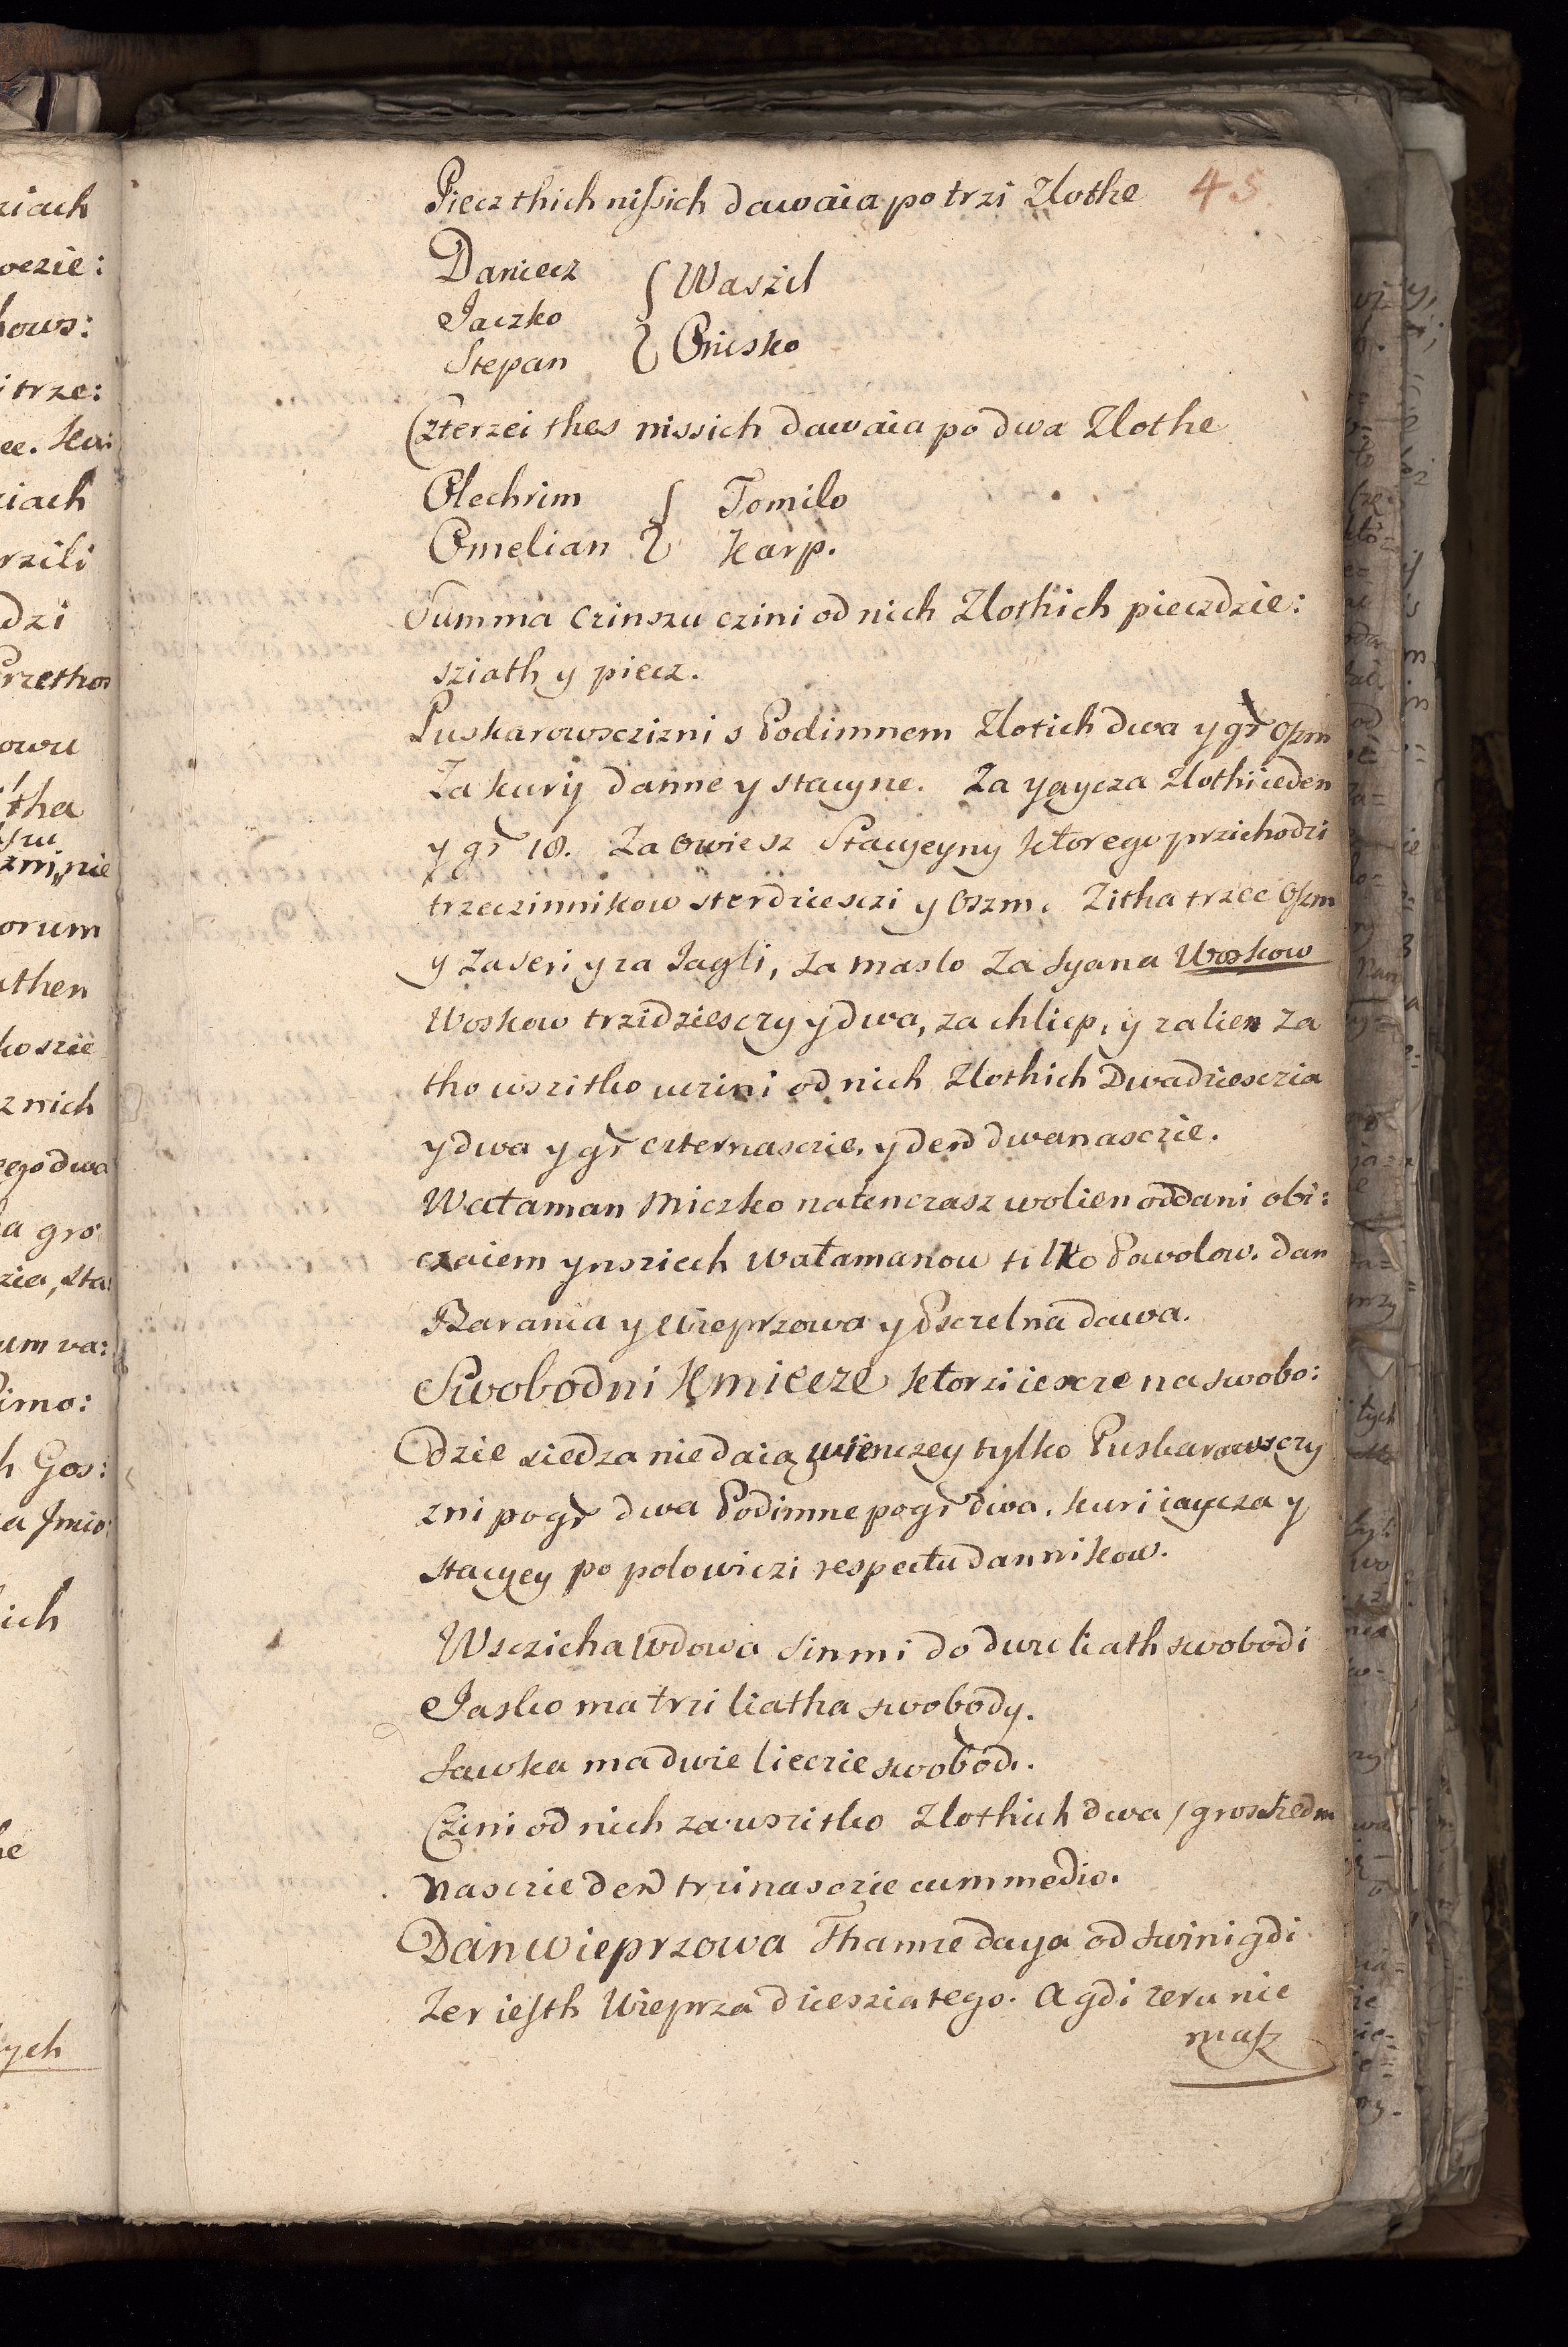 45.
Piecz thich niſsich dawaia po trzi Zlothe
Daniecz { Waszil
Jaczko
Stepan } Oniesko
Czterzei thes nissich dawaia po dwa Zlothe
Olechrim { Tomilo
Omelian } Karp.
Summa czinszu czini od nich Zlothich pieczdzie:
sziath y piecz.
Puskarowsczizni s Podimnem Zlotich dwa y gr̃ oſzm
Za kurÿ danne y stacyne. Za yaycza Zlothi ieden
y gr̃ 18. Za owiesz Stacyeyny ktorego przichodzi
trzeczinnikow sterdziesczi y oszm. Zitha trzec oſzm
y za seri y za Jagli, za maslo za syana Woskow
Woskow trzidziesczy y dwa, za chliep, y za lien za
tho wszitko uczini od nich Zlothich Dwadziesczia
y dwa y gr̃ czternasczie, y den̄ dwanasczie.
Wataman Miczko natenczasz wolien oddani obi:
czaiem ynsziech watamanow tilko Powolow. dan
Barania y wieprzowa y Psczelna dawa.
Swobodni Kmiecze ktorzi iescze na swobo:
dzie siedza nie daią wienczey tylko Puskarowsczy
zni po gr̃ dwa Podimne po gr̃ dwa, kuri iaycza y
stacyey po polowiczi respectu dannikow.
Wsczicha wdowa sinmi do dwu liath swobodi
Jasko ma trzi liatha swobody.
Sawka ma dwie lieczie swobod.
Czini od nich za wszitko Zlothich dwa / grosz iedm
nasczie den̄ trzinasczie cum medio.
Dan wieprzowa Thamze daya od swini gdi
Zer ieſth Wieprza dziesziatego. A gdi zeru nie
maſz